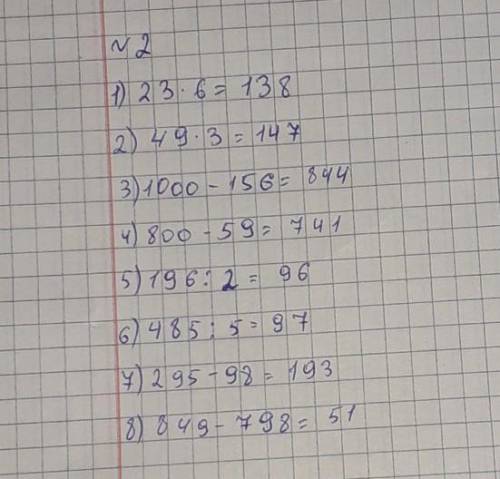 №2
1) 23·6=138
2) 49·3=147
3) 1000-156=844
4) 800-59=741
5) 196:2=96
6) 485:5=97
7) 295-98=193
8) 849-798=51